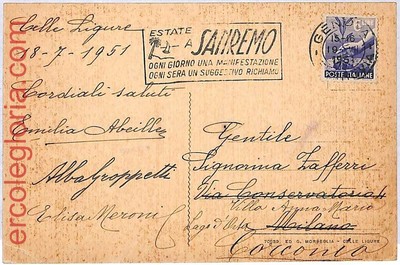 Celle Ligure
18-7-1951
Cordiali saluti
Emilia Abeille
Alba Groppetti
Elisa Meroni
ESTATE
A SANREMO
OGNI GIORNO UNA MANIFESTAZIONE
OGNI SERA UN SUGGESTIVO RICHIAMO
GENOVA
POSTE ITALIANE
Gentile
Signorina Zafferri
Via Conservatorio
Villa Anna Maria
Lago d'Orta
Milano
70093 ED. G. MORBEGLIA - CELLE LIGURE
ercolegloria.com